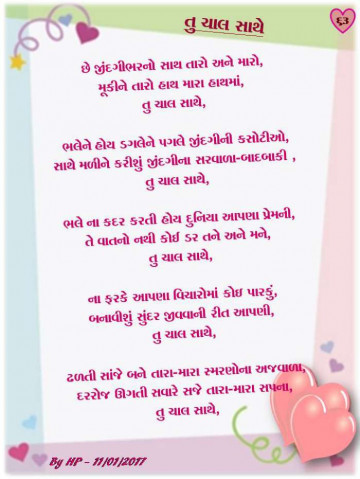 તુ ચાલ સાથે
૬૩
છે જીંદગીભરનો સાથ તારો અને મારો,
મૂકીને તારો હાથ મારા હાથમાં,
તુ ચાલ સાથે,
ભલેને હોય ડગલેને પગલે જીંદગીની કસોટીઓ,
સાથે મળીને કરીશું જીંદગીના સરવાળા-બાદબાકી ,
તુ ચાલ સાથે,
ભલે ના કદર કરતી હોય દુનિયા આપણા પ્રેમની,
તે વાતનો નથી કોઈ ડર તને અને મને,
તુ ચાલ સાથે,
ના ફરકે આપણા વિચારોમાં કોઇ પારકું,
બનાવીશું સુંદર જીવવાની રીત આપણી,
તુ ચાલ સાથે,
ઢળતી સાંજે બને તારા-મારા સ્મરણોના અજવાળા,
દરરોજ ઊગતી સવારે સજે તારા-મારા સપના,
તુ ચાલ સાથે,
By HP - 11/01/2017